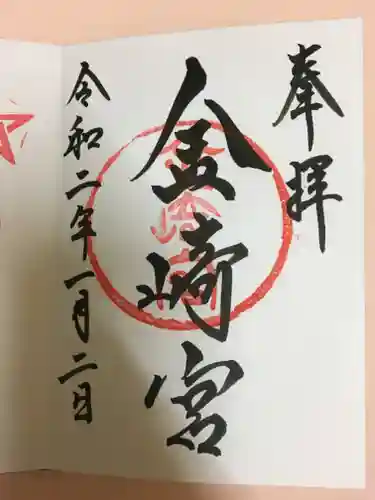 奉拝
金崎宮
令和二年一月二日